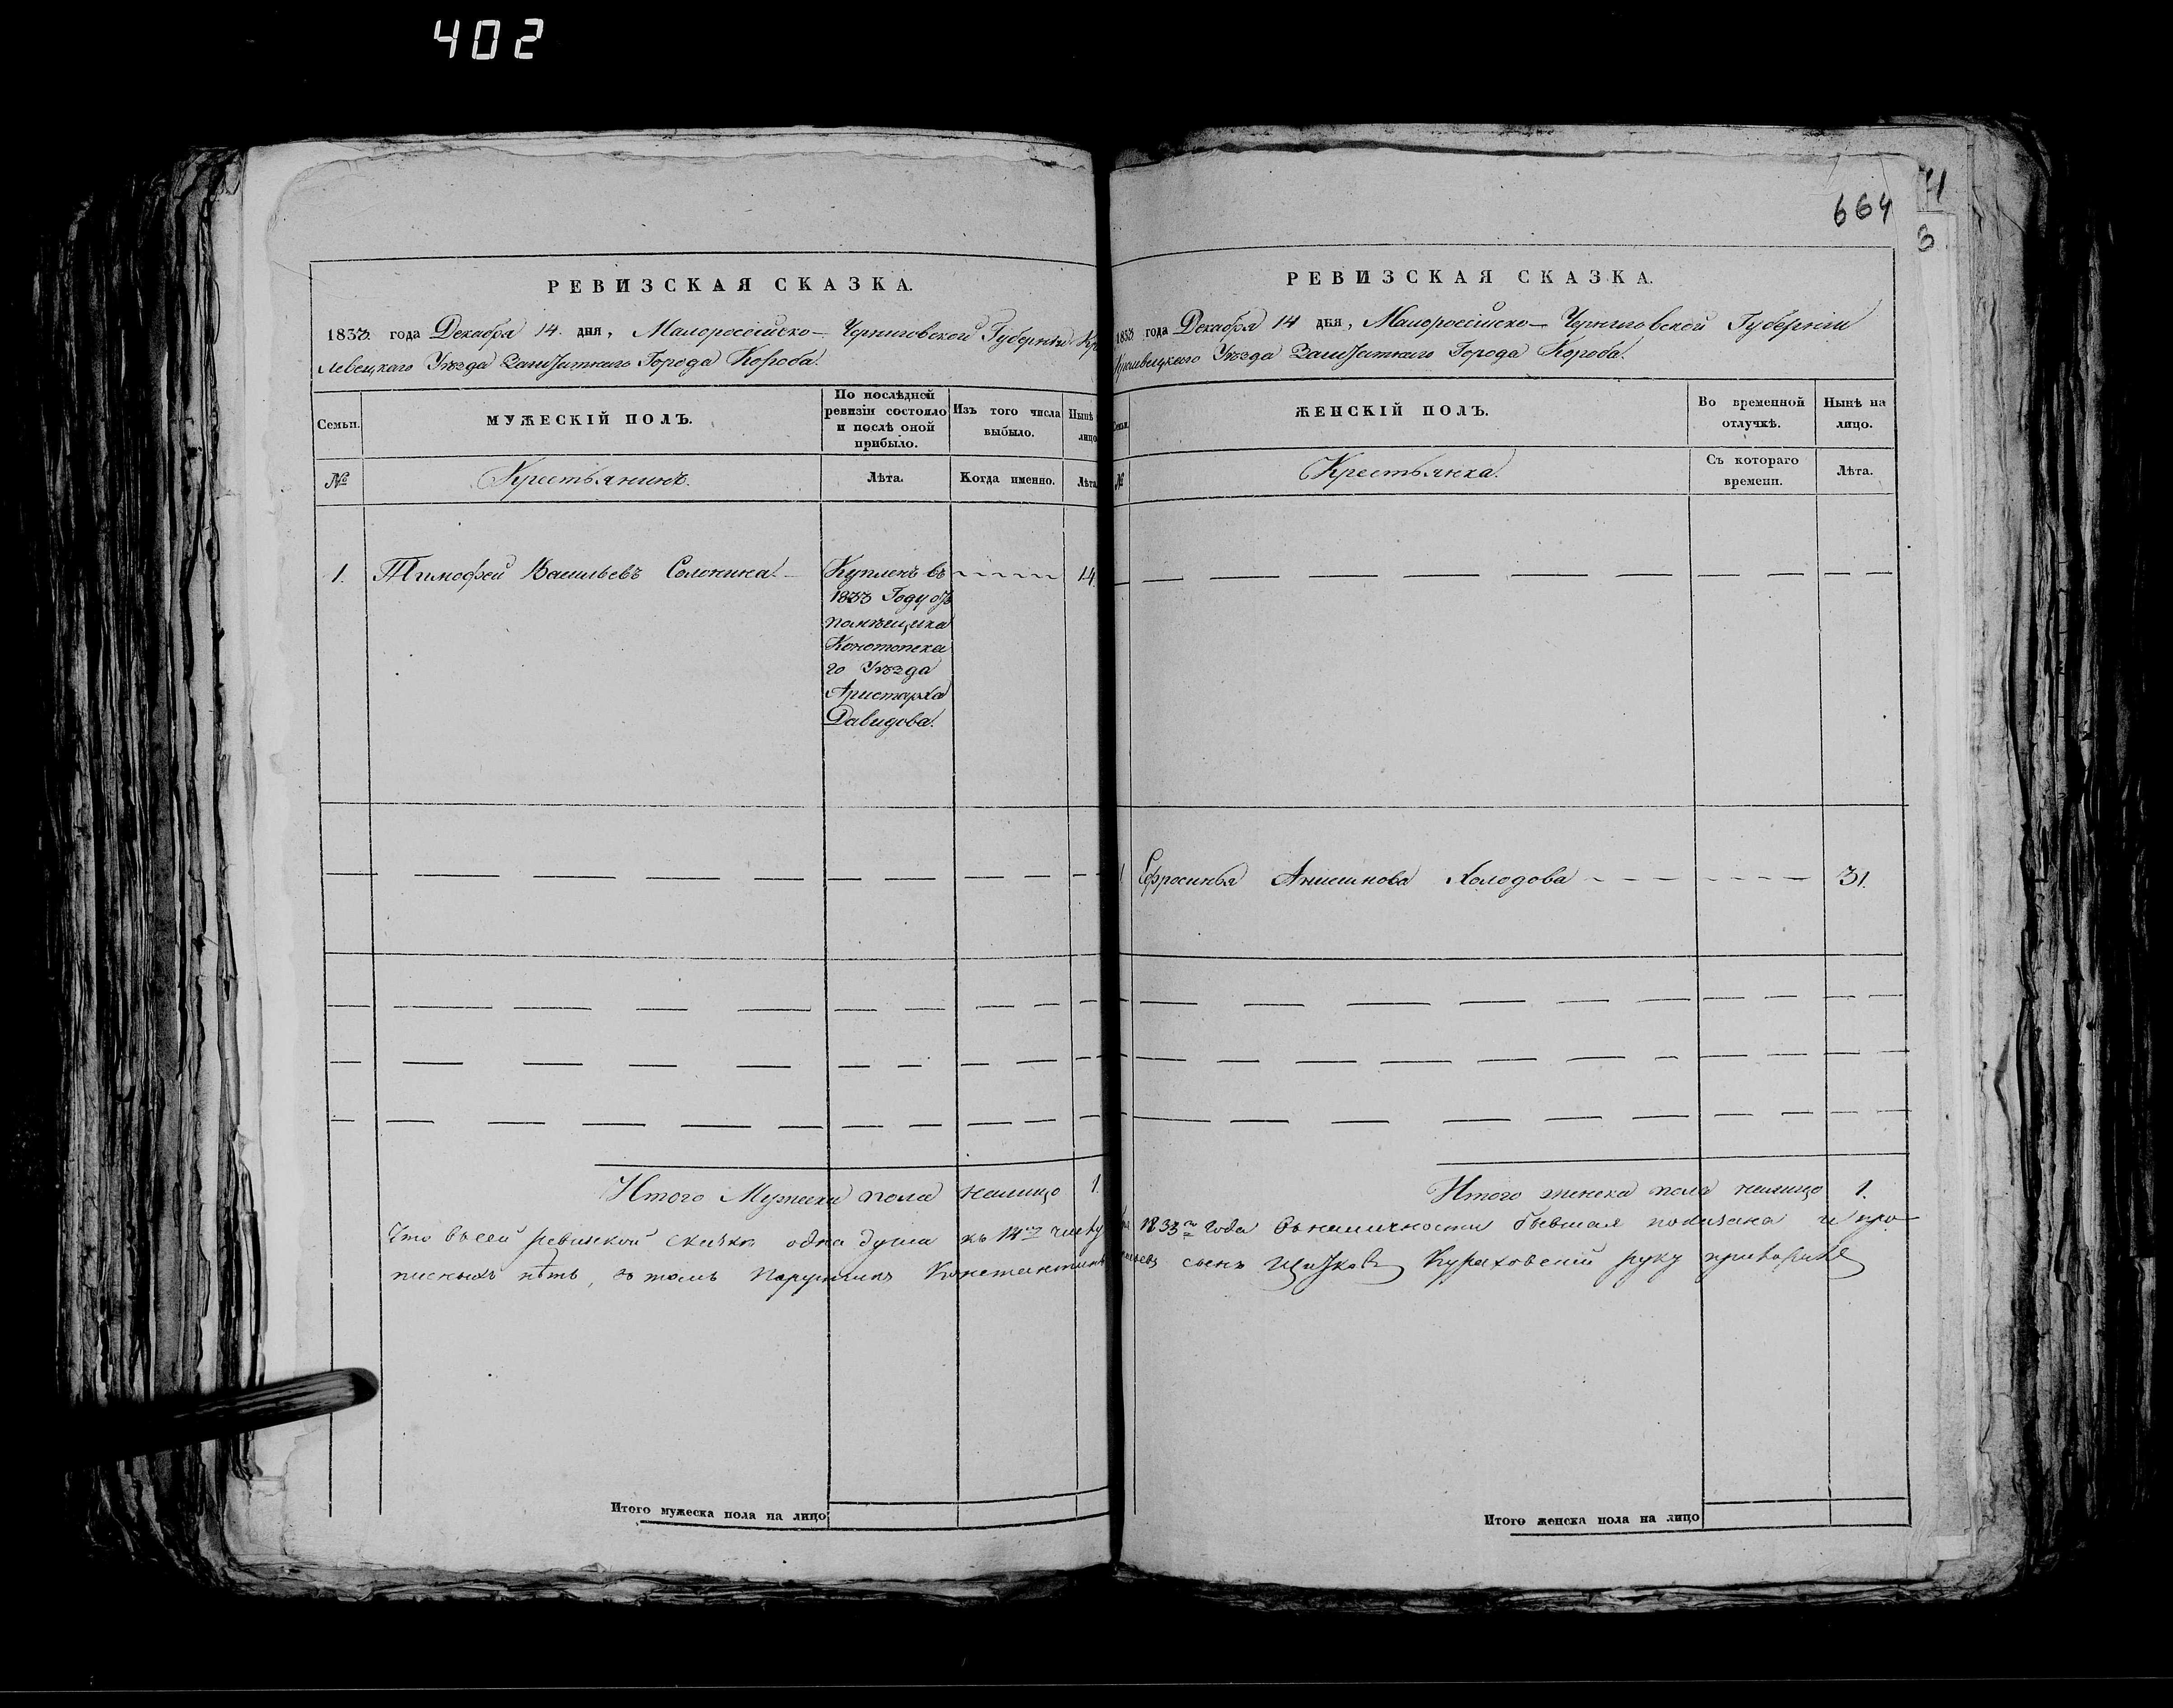 402
664
3
РЕВИЗСКАЯ СКАЗКА.
1833. года Декабря 14. дня, Малороссійско- Черниговской Губерніи
левецкаго Уѣзда Заштатнаго Города Короба.
Семьи.
МУЖЕСКІЙ ПОЛЪ.
По послѣдней ревизіи состояло и послѣ оной прибыло.
Изъ того числа выбыло.
Нынѣ лицо
№
Крестьянинъ.
Лѣта.
Когда именно.
Лѣта
1. Тимофей Васильевъ Солонина. Купленъ въ 14.
1833 Году отъ
помѣщика
Конотопска
го Уѣзда
Аристарха
Давидова.
Итого Мужеска пола налицо 1.
Что въ сей ревизской сказкѣ одна душа къ 14 числу
писныхъ нѣтъ, въ томъ Порутчикъ Константинъ
Итого мужеска пола на лицо
РЕВИЗСКАЯ СКАЗКА.
1833 года Декабря 14 дня, Малороссійско- Черниговской Губерніи
Кролевецкаго Уѣзда Заштатнаго Города Короба.
ЖЕНСКІЙ ПОЛЪ.
Во временной отлучкѣ.
Нынѣ на лицо.
№
Крестьянка.
Съ котораго времени.
Лѣта.
Ефросинья Анисимова Холодова 31.
Итого женска пола налицо 1.
1833 года въ наличности бывшая показана и про
сынъ Кураховскій руку приложилъ
Итого женска пола на лицо